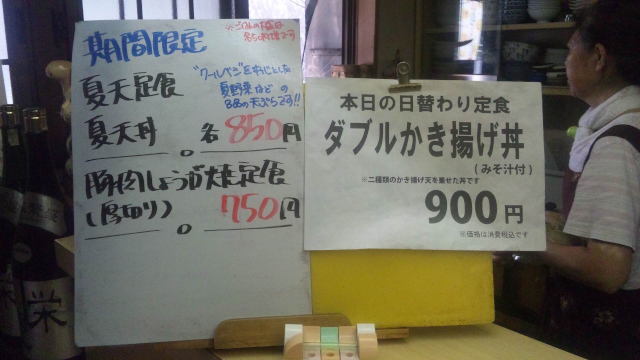 期間限定
※ごはんの大盛は
夏天定食
"クールベジ"をメインとした
夏野菜などの
8品の天ぷらです!!
夏天丼 各850円
豚肉しょうが焼き定食
(厚切り) 750円
本日の日替わり定食
ダブルかき揚げ丼
(みそ汁付)
※二種類のかき揚げ天を乗せた丼です
900円
※価格は消費税込です
栄